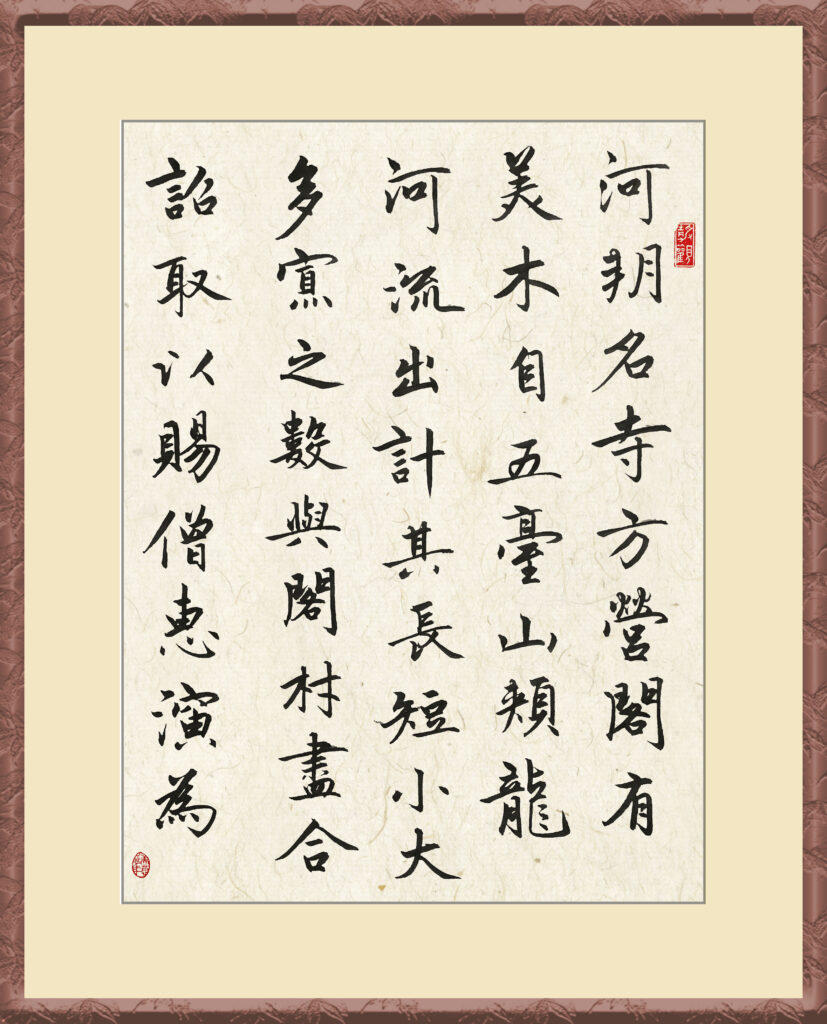 河朔名寺方營閣有
美木自五臺山頰龍
河流出計其長短小大
多寡之數與閣材盡合
詔取以賜僧惠演為